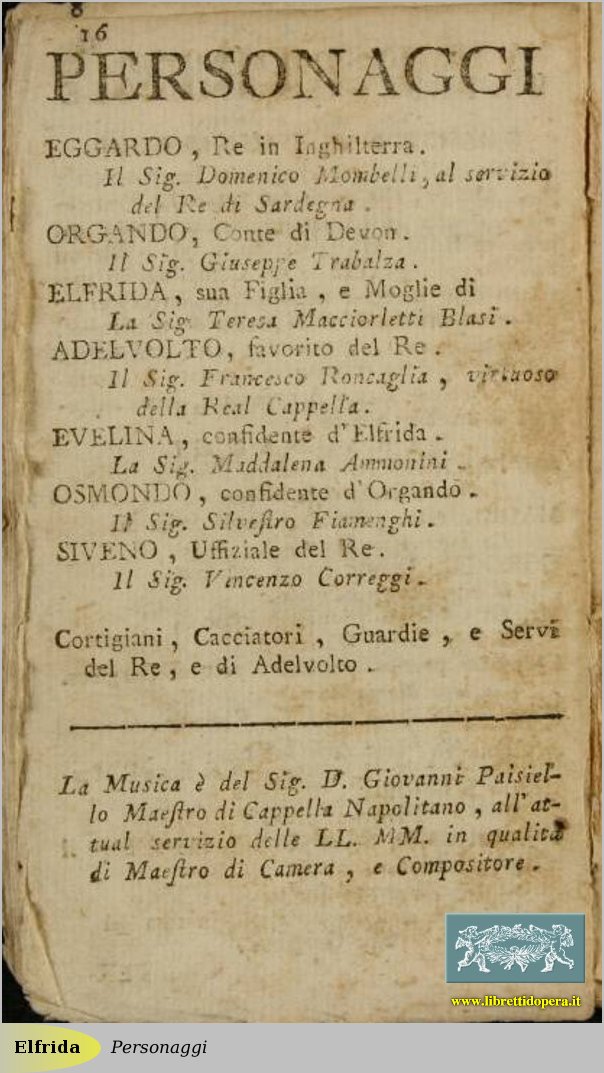 8
16
PERSONAGGI
EGGARDO, Re in Inghilterra.
Il Sig. Domenico Mombelli, al servizio
del Re di Sardegna.
ORGANDO, Conte di Devon.
Il Sig. Giuseppe Trabalza.
ELFRIDA, sua Figlia, e Moglie di
La Sig. Teresa Macciorletti Blasi.
ADELVOLTO, favorito del Re.
Il Sig. Francesco Roncaglia, virtuoso
della Real Cappella.
EVELINA, confidente d'Elfrida.
La Sig. Maddalena Ammonini.
OSMONDO, confidente d'Orgando.
Il Sig. Silveſtro Fiamenghi.
SIVENO, Uffiziale del Re.
Il Sig. Vincenzo Correggi.
Cortigiani, Cacciatori, Guardie, e Servi
del Re, e di Adelvolto.
La Musica è del Sig. D. Giovanni Paisiel-
lo Maeſtro di Cappella Napolitano, all'at-
tual servizio delle LL. MM. in qualità
di Maeſtro di Camera, e Compositore.
www.librettidopera.it
Elfrida Personaggi